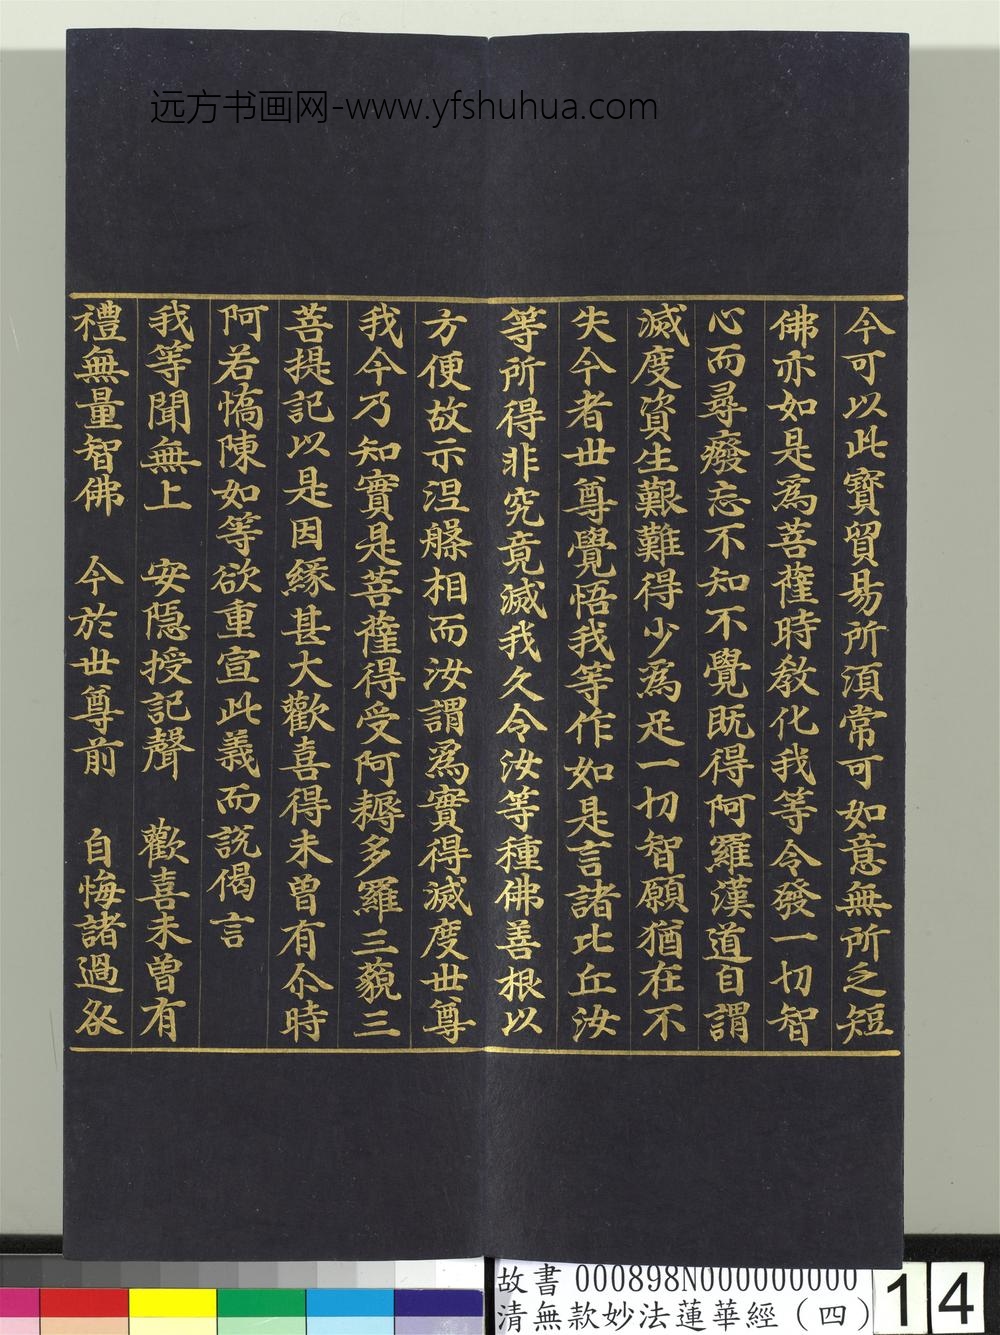 远方书画网-www.yfshuhua.com
今可以此寶貿易所須常可如意無所乏短
佛亦如是為菩薩時教化我等令發一切智
心而尋癈忘不知不覺既得阿羅漢道自謂
滅度資生艱難得少為足一切智願猶在不
失今者世尊覺悟我等作如是言諸比丘汝
等所得非究竟滅我久令汝等種佛善根以
方便故示涅槃相而汝謂為實得滅度世尊
我今乃知實是菩薩得受阿耨多羅三藐三
菩提記以是因緣甚大歡喜得未曾有尒時
阿若憍陳如等欲重宣此義而說偈言
我等聞無上　安隱授記聲　歡喜未曾有
禮無量智佛　今於世尊前　自悔諸過咎
故書 000898N000000000
清無款妙法蓮華經（四）
14